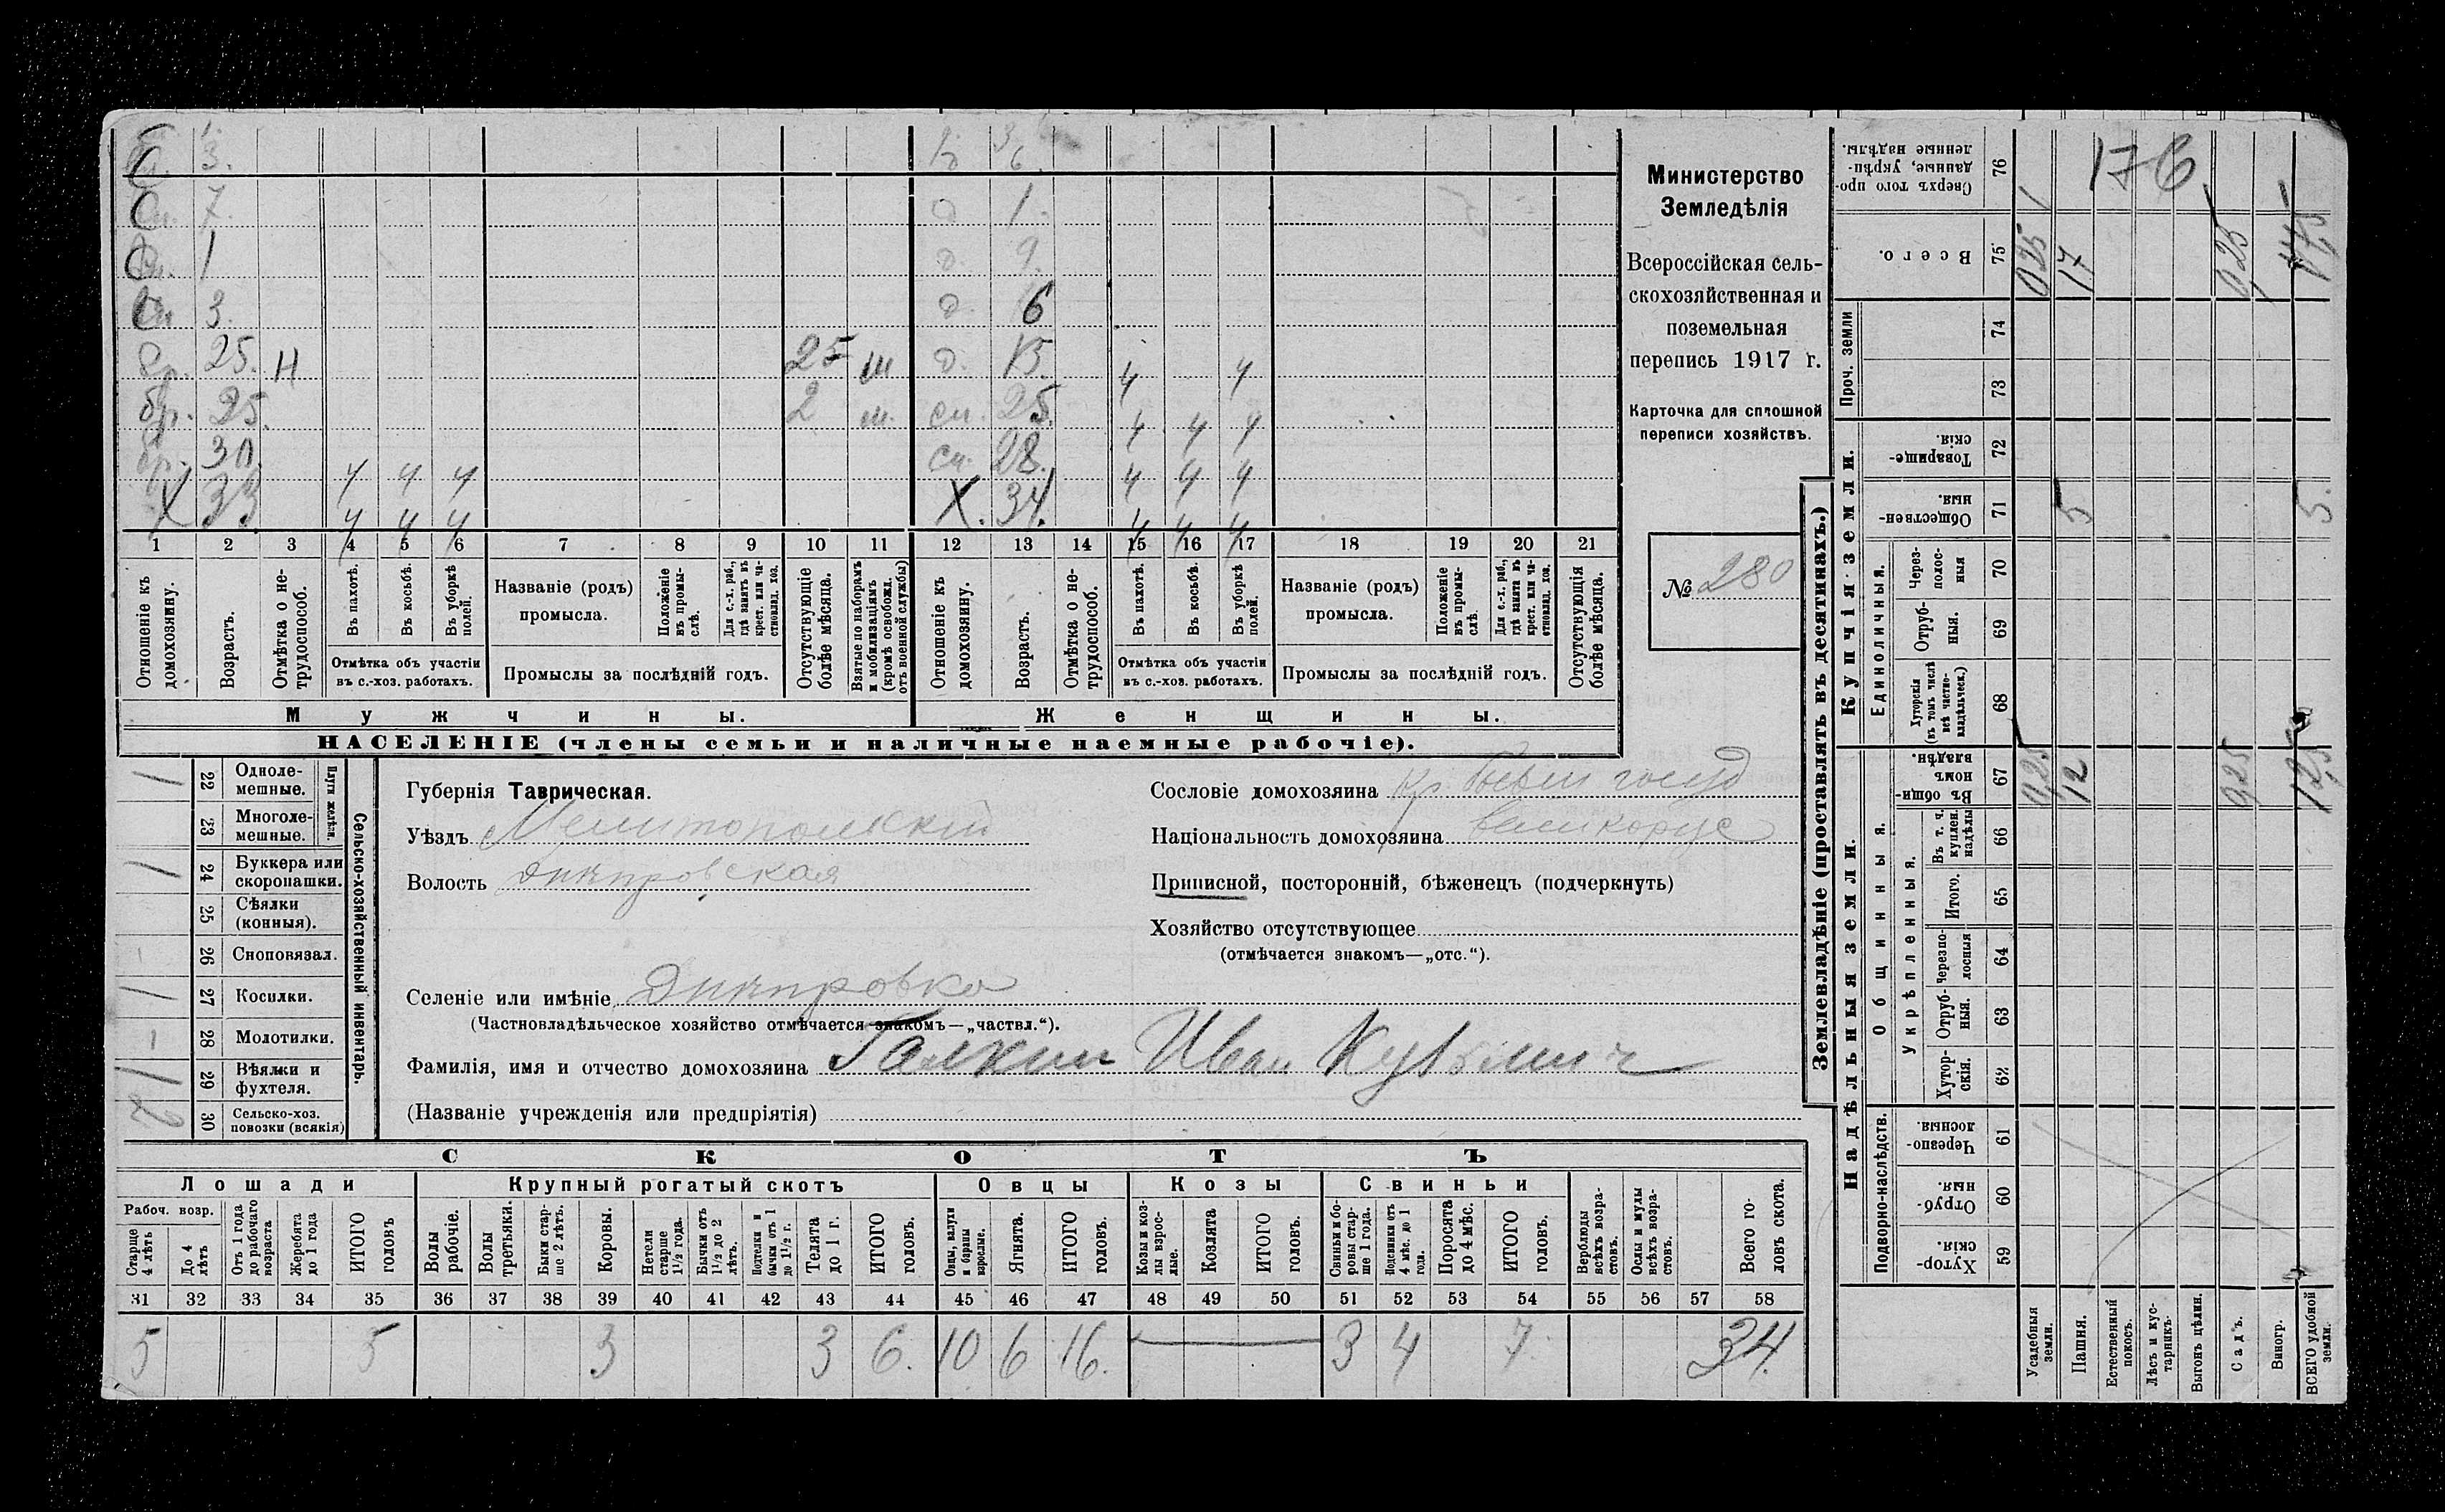 Министерство
Земледѣлія
Всероссійская сель-
скохозяйственная и
поземельная
перепись 1917 г.
Карточка для сплошной
переписи хозяйствъ.
№ 280
3. 6
С 7. д 1.
С 1 д. 9.
3. д. 6
бр. 25. Н 25 ш д. 15. ч ч
бр. 25. 2 ш. сн. 25. ч ч ч
бр. 30 ч ч ч сн. 28. ч ч ч
Х 33 ч ч ч Х. 34. ч ч ч
1 2 3 4 5 6 7 8 9 10 11 12 13 14 15 16 17 18 19 20 21
Отношеніе къ домохозяину.
Возрастъ.
Отмѣтка о не-трудоспособ.
Въ пахотѣ.
Въ косьбѣ.
Въ уборкѣ полей.
Отмѣтка объ участіи въ с.-хоз. работахъ.
Названіе (родъ) промысла.
Положеніе въ промы-слѣ.
Для с.-х. раб., гдѣ занятъ въ крест. или ча-стновлад. хоз.
Промыслы за послѣдній годъ.
Отсутствующіе болѣе мѣсяца.
Взятые по наборамъ и мобилизаціямъ (кромѣ освобожд. отъ военной службы)
Отношеніе къ домохозяину.
Возрастъ.
Отмѣтка о не-трудоспособ.
Въ пахотѣ.
Въ косьбѣ.
Въ уборкѣ полей.
Отмѣтка объ участіи въ с.-хоз. работахъ.
Названіе (родъ) промысла.
Положеніе въ промы-слѣ.
Для с.-х. раб., гдѣ занята въ крест. или ча-стновлад. хоз.
Промыслы за послѣдній годъ.
Отсутствующія болѣе мѣсяца.
Мужчины.
Женщины.
НАСЕЛЕНІЕ (члены семьи и наличные наемные рабочіе).
Сельско-хозяйственный инвентарь.
Плуги желѣзн.
1 22 Одноле-мешные.
23 Многоле-мешные.
1 24 Буккера или скоропашки.
25 Сѣялки (конныя).
- 26 Сноповязал.
1 27 Косилки.
- 28 Молотилки.
1 29 Вѣялки и фухтеля.
2 30 Сельско-хоз. повозки (всякія)
Губернія Таврическая.
Уѣздъ Мелитопольскій
Волость Днѣпровская
Селеніе или имѣніе Днѣпровка
(Частновладѣльческое хозяйство отмѣчается знакомъ—„частвл.“).
Фамилія, имя и отчество домохозяина Галкин Иван Кузьмич
(Названіе учрежденія или предпріятія)
Сословіе домохозяина кр. бывш госуд
Національность домохозяина великорус
Приписной, посторонній, бѣженецъ (подчеркнуть)
Хозяйство отсутствующее
(отмѣчается знакомъ—„отс.“).
СКОТЪ
Лошади Крупный рогатый скотъ Овцы Козы Свиньи
Рабоч. возр.
Старше 4 лѣтъ
До 4 лѣтъ
Отъ 1 года до рабочаго возраста
Жеребята до 1 года
ИТОГО головъ
Волы рабочіе.
Волы третьяки.
Быки стар-ше 2 лѣтъ.
Коровы.
Нетели старше 1½ года.
Бычки отъ 1½ до 2 лѣтъ.
Подтелки и бычки отъ 1 до 1½ г.
Телята до 1 г.
ИТОГО головъ.
Овцы, валухи и бараны взрослые.
Ягнята.
ИТОГО головъ.
Козы и коз-лы взрос-лые.
Козлята
ИТОГО головъ.
Свиньи и бо-ровы стар-ше 1 года.
Подсвинки отъ 4 мѣс. до 1 года.
Поросята до 4 мѣс.
ИТОГО головъ.
Верблюды всѣхъ возра-стовъ.
Ослы и мулы всѣхъ возра-стовъ.
Всего го-ловъ скота.
31 32 33 34 35 36 37 38 39 40 41 42 43 44 45 46 47 48 49 50 51 52 53 54 55 56 57 58
5 5 3 3 6. 10 6 16. 3 4 7. 34.
Землевладѣніе (проставлять въ десятинахъ.)
Надѣльныя земли.
Купчія земли.
Проч. земли
Подворно-наслѣдств.
Общинныя.
Укрѣпленныя.
Единоличныя.
Сверхъ того про-данные, укрѣп-ленные надѣлы. 76 176
Всего. 75 0,25 17 0,25 17,5
74
73
Товарище-скія. 72
Обществен-ныя. 71 5 5.
Через-полос-ныя 70
Отруб-ныя. 69
Хуторскія (въ томъ числѣ всѣ частно-владѣльческ.) 68
Въ общин-номъ владѣн. 67 0,25 12 0,25 12,5
Въ т. ч. куплен. надѣлы 66
Итого. 65
Черезпо-лосныя 64
Отруб-ныя. 63
Хутор-скія. 62
Черезпо-лосныя. 61
Отруб-ныя. 60
Хутор-скія. 59
Усадебныя земли.
Пашня.
Естественный покосъ.
Лѣсъ и кус-тарникъ.
Выгонъ цѣлин.
Садъ.
Виногр.
ВСЕГО удобной земли.